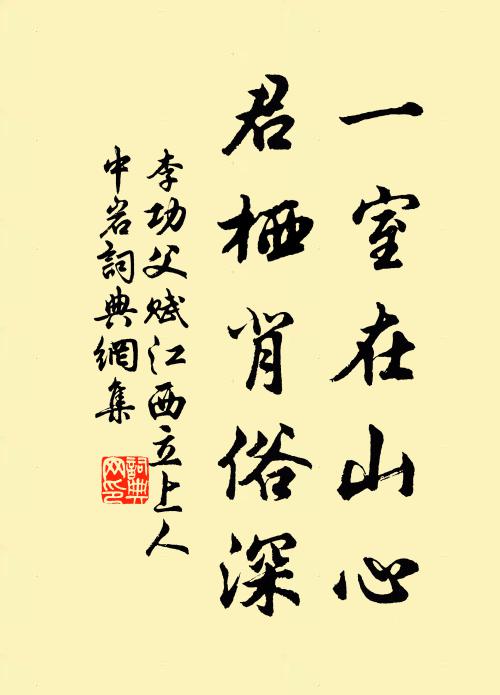 一室在山心
君栖背俗深
李功父赋江西立上人
中岩詞典網集
詞典
网印